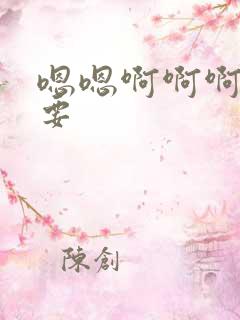 嗯嗯啊啊啊
要
陳創